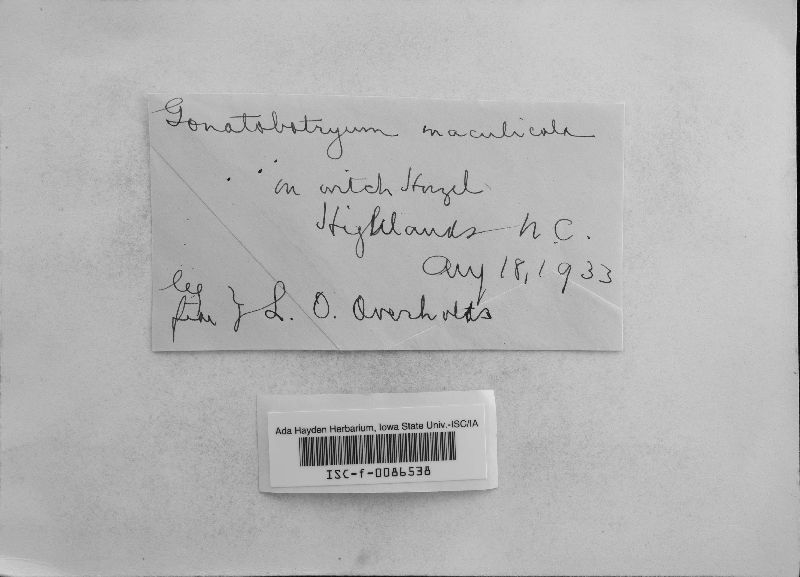 Gonatobotryum maculicola
on witch Hazel
Highlands N.C.
Aug 18, 1933
leg
} L. O. Overholts
Ada Hayden Herbarium, Iowa State Univ.-ISC/IA
ISC-f-0086538